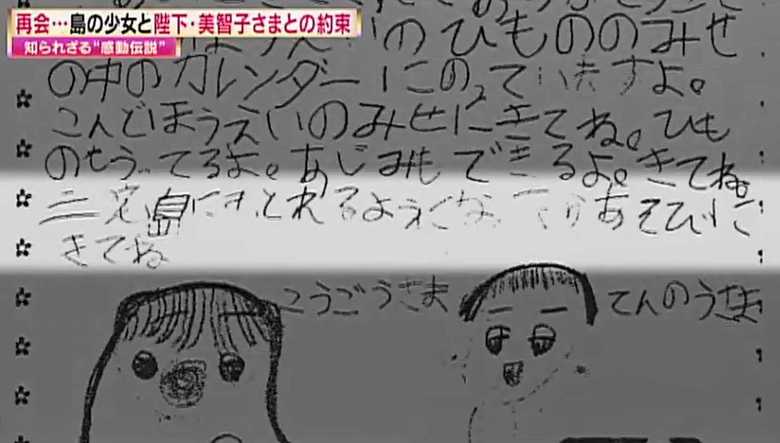 再会…島の少女と陛下・美智子さまとの約束
知られざる“感動伝説”
のひもののみせ
の中のカレンダーにのっていますよ。
こんどほうえいのみせにきてね。ひも
のもうってるよ。あじみもできるよ。きてね。
三宅島に あそびに
きてね
こうごうさま
てんのうさま